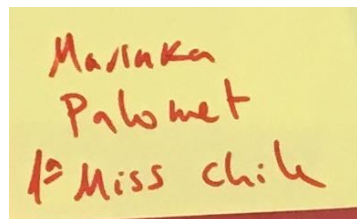 Marinka
Palomet
1ª Miss Chile